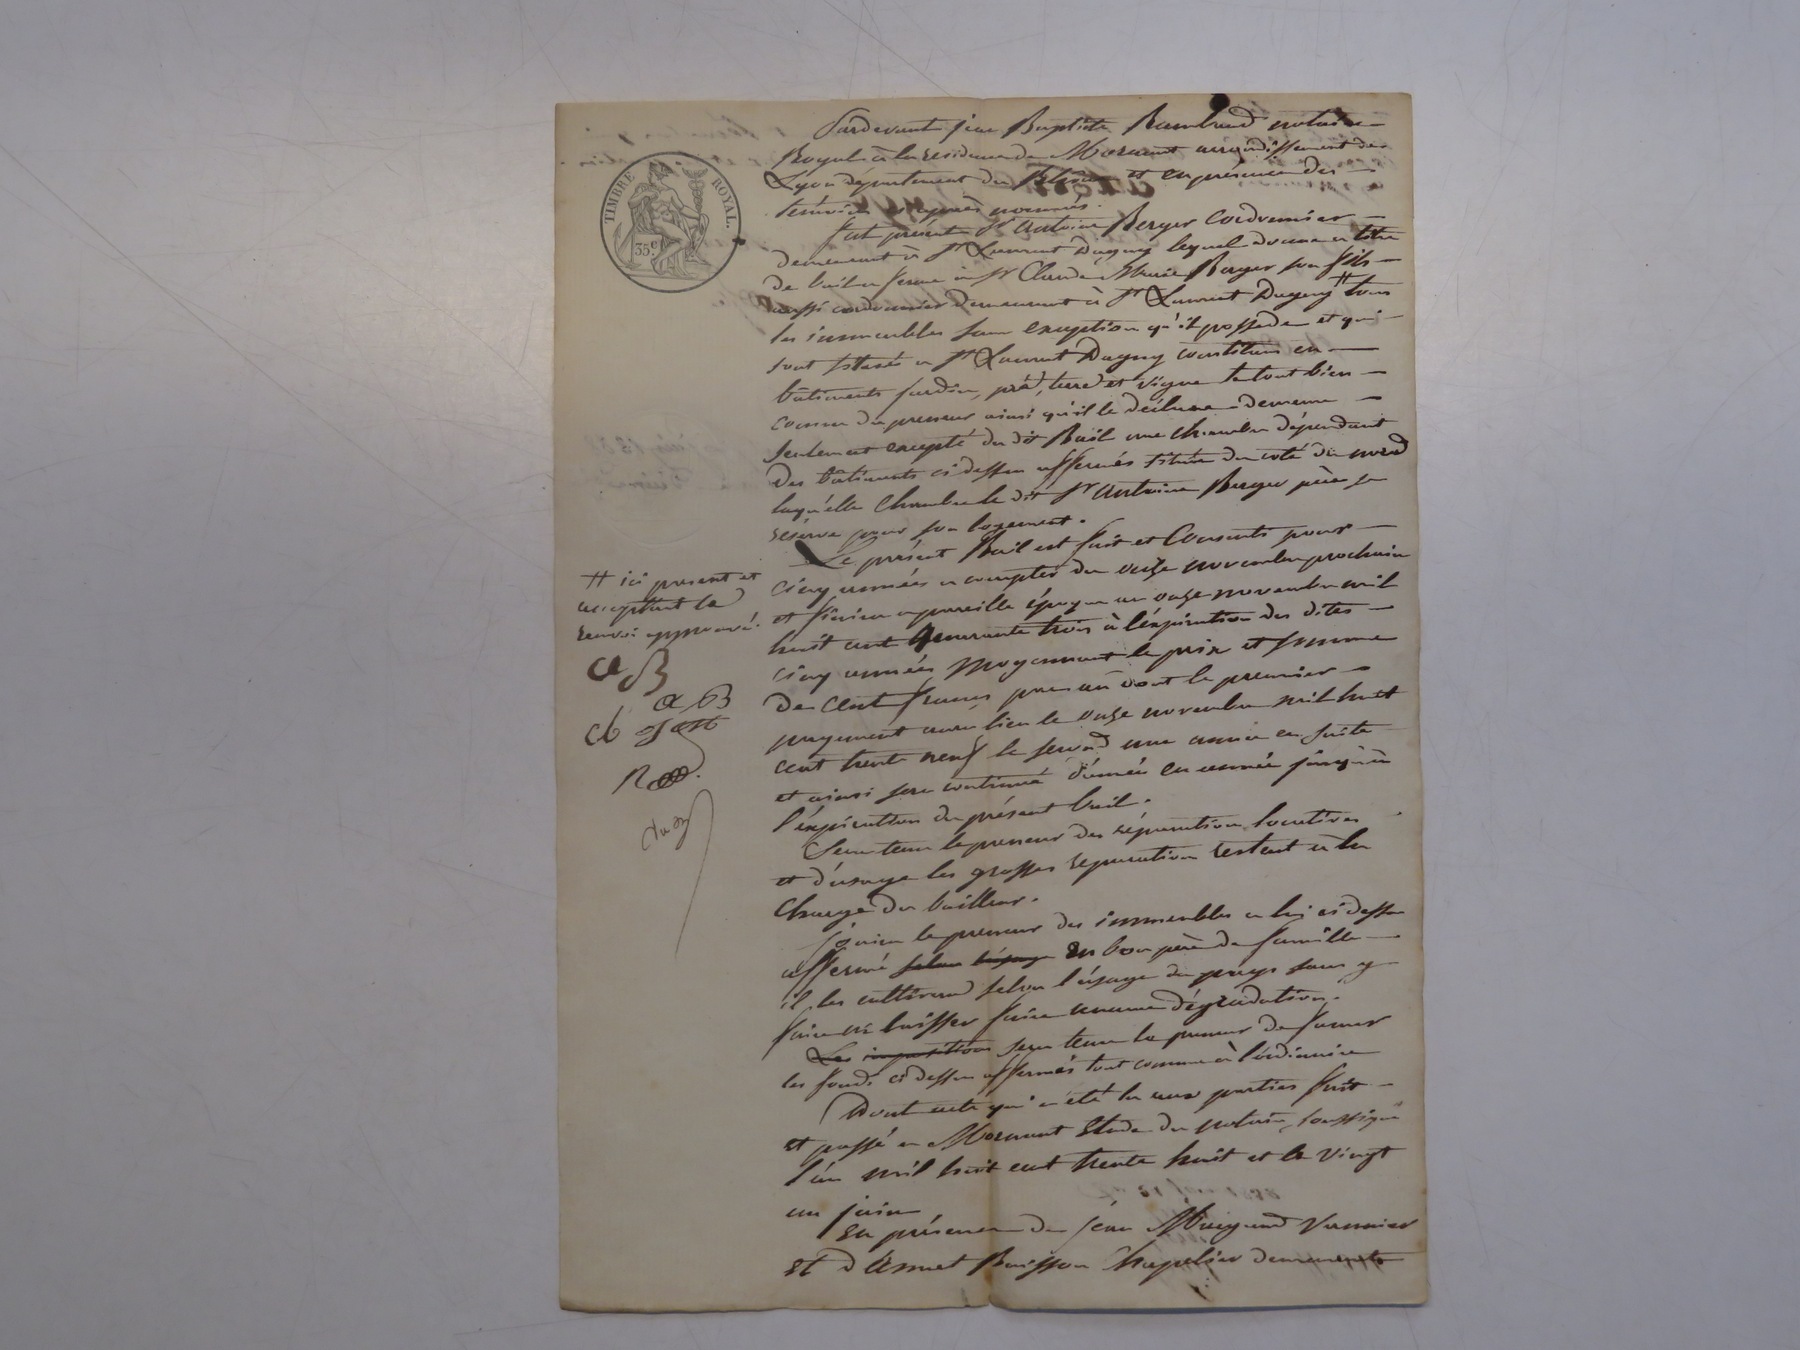 TIMBRE ROYAL.
35.c
Pardevant jean Baptiste Rambaud notaire
Royal à la residence de Mornant arrondissement de
Lyon département du Rhône et en présence des
témoins ci après nommés.
fut présent Sr Antoine Berger Cordonnier
demeurant à St Laurent Dagny lequel donne a titre
de bail a ferme à Sr Claude Marie Berger son fils
aussi cordonnier demeurant à St Laurent Dagny # tous
les immeubles sans exception qu'il possede et qui
sont situés a St Laurent Dagny consistans en
bâtiments jardin, pré, terre et vigne le tout bien
connu du preneur ainsi qu'il le déclare demeure
seulement excepté du dit Bail une chambre dépendant
des bâtiments ci dessus affermés située du coté du nord
laquélle chambre le dit Sr Antoine Berger père se
réserve pour son logement.
Le présent Bail est fait et Consenti pour
cinq années a compter du onze novembre prochain
et finira a pareille époque au onze novembre mil
huit cent quarante trois à l'éxpiration des dites
cinq années moyennant le prix et somme
de cent francs par an dont le premier
payement aura lieu le onze novembre mil huit
cent trente neuf le second une année en suite
et ainsi sera continué d'année en année jusqu'à
l'éxpiration du présent bail.
Sera tenu le preneur des réparations locatives
et d'usage les grosses reparations restent à la
charge du bailleur.
Jouira le preneur des immeubles a lui ci dessus
affermé selon l'usage en bon père de famille
il les cultivera selon l'usage du pays sans y
faire ni laisser faire aucune dégradation.
Les impositions sera tenu le preneur de fumer
les fonds ci dessus affermés tout comme à l'ordinaire
Dont acte qui a été lu aux parties fait
et passé a Mornant Etude du notaire soussigné
l'an mil huit cent trente huit et le vingt
un juin
En présence de jean Vannier
Et d'Annet Buisson Chapelier demeurants
# ici present et
acceptant le
renvoi approuvé.
CB
a B